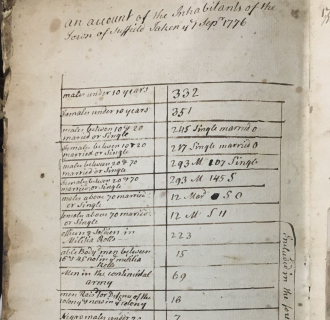 an account of the Inhabitants of the
Town of Suffield Taken 4th Sepr 1776
males under 10 years 332
females under 10 years 351
males between 10 & 20
married or Single 245 Single married 0
females between 10 & 20
married or Single 217 Single married 0
males between 20 & 70
married or Single 293 M 107 Single
females between 20 & 70
married or Single 293 M 145 S
males above 70 married
or Single 12 Mard S 0
females above 70 married
or Single 12 M S 11
officers & Soldiers in
Militia Rolls 223
able Body'd men between
16 & 45 not in ye militia
Rolls 15
Men in the continental
army 69
men Rais'd for Defence of the
colony & now in ye colony 16
Negro males under 20 7
Included in the